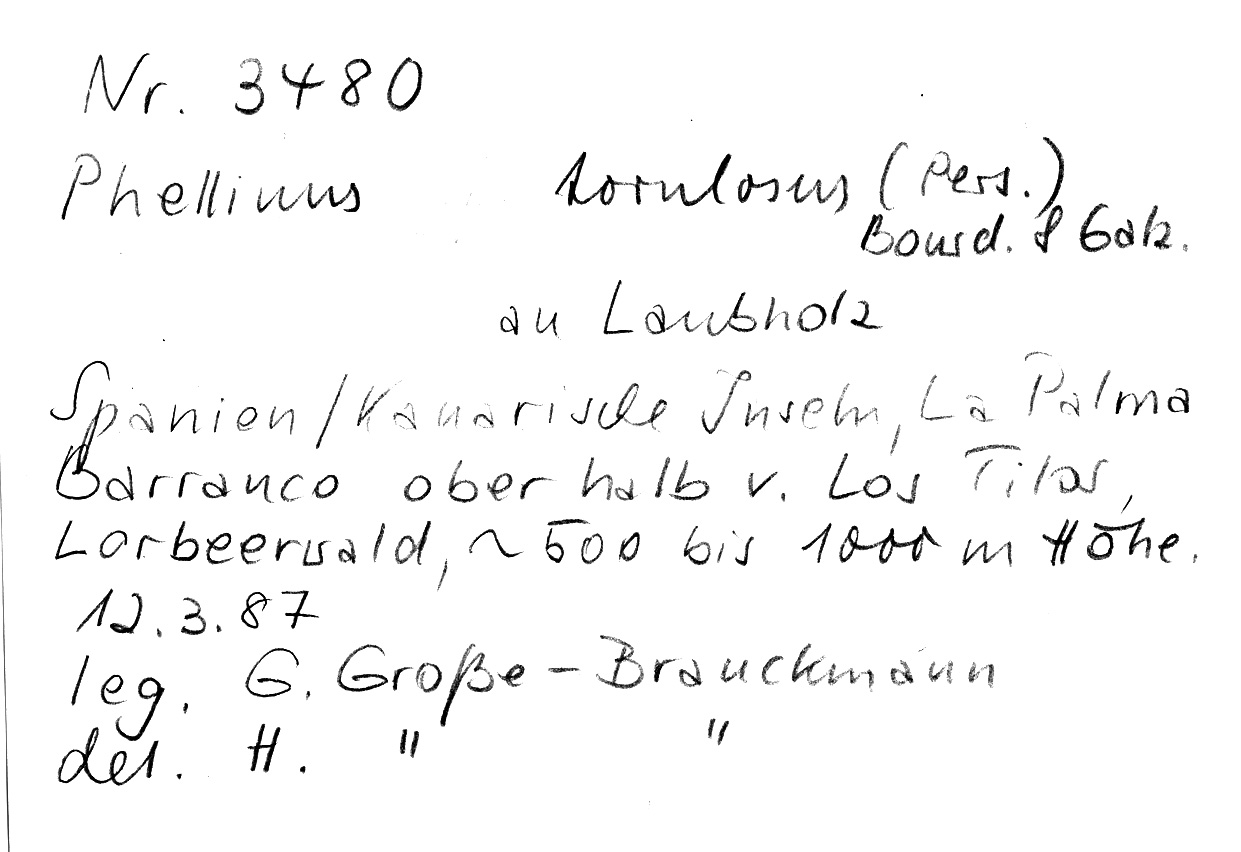 Nr. 3480
Phellinus torulosus (Pers.)
Bourd. & Galz.
an Laubholz
Spanien/Kanarische Inseln, La Palma
Barranco oberhalb v. Los Tilos,
Lorbeerwald, ~ 500 bis 1000 m Höhe.
12.3.87
leg. G. Große-Brauckmann
det. H. " "